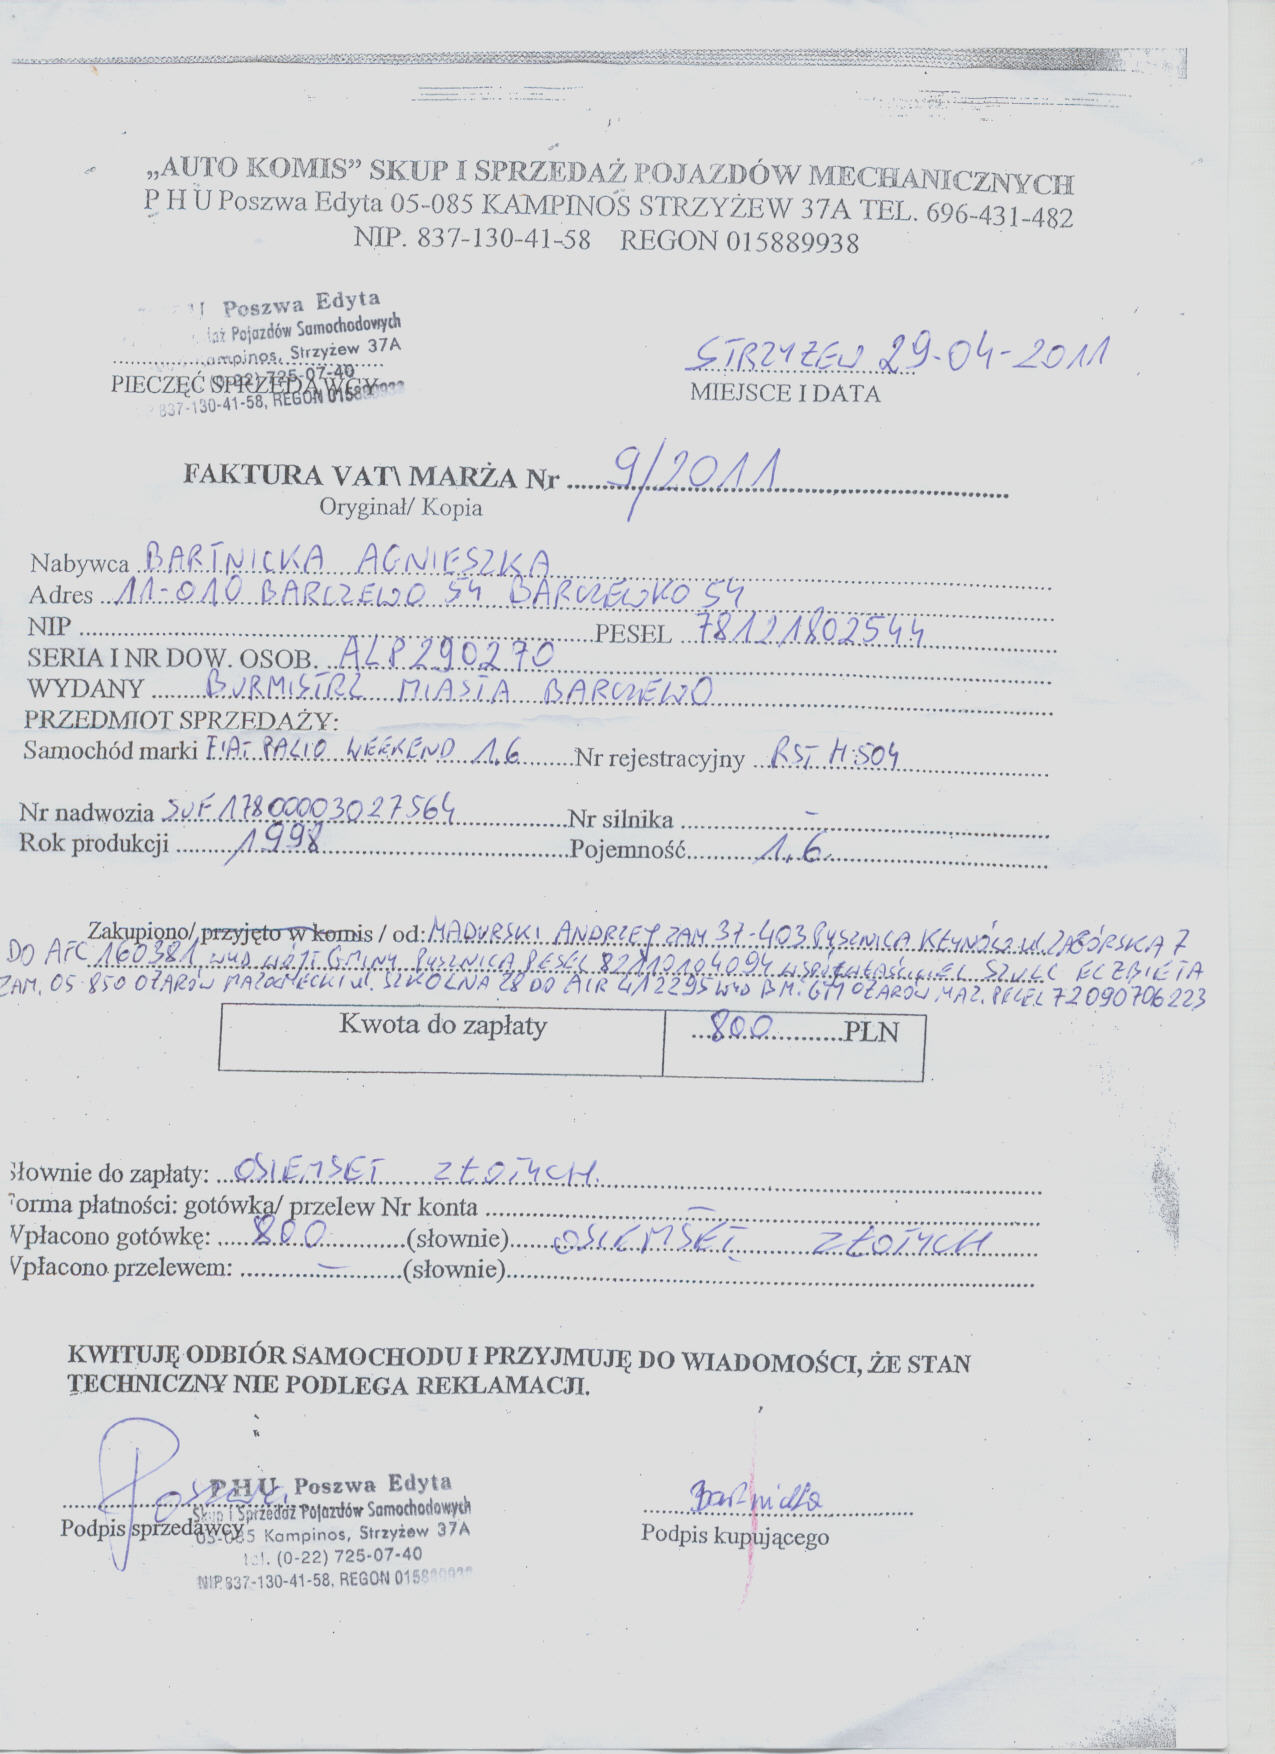 „AUTO KOMIS” SKUP I SPRZEDAŻ POJAZDÓW MECHANICZNYCH
P H U Poszwa Edyta 05-085 KAMPINOS STRZYŻEW 37A TEL. 696-431-482
NIP. 837-130-41-58 REGON 015889938
U Poszwa Edyta
Pojazdów Samochodowych
Kampinos, Strzyżew 37A
(0-22) 725-07-40
837-130-41-58, REGON 015889938
PIECZĘĆ SPRZEDAWCY
STRZYŻEW 29-04-2011
MIEJSCE I DATA
FAKTURA VAT\ MARŻA Nr 9/2011
Oryginał/ Kopia
Nabywca BARTNICKA AGNIESZKA
Adres 11-010 BARCZEWO 54 BARCZEWKO 54
NIP PESEL 78121802544
SERIA I NR DOW. OSOB. ALP290270
WYDANY BURMISTRZ MIASTA BARCZEWO
PRZEDMIOT SPRZEDAŻY:
Samochód marki FIAT PALIO WEEKEND 1.6 Nr rejestracyjny RST H504
Nr nadwozia SUF17800003027564 Nr silnika –
Rok produkcji 1998 Pojemność 1.6
Zakupiono/ przyjęto w komis / od: MADURSKI ANDRZEJ ZAM 37-403 PYSZNICA ul. ZABÓRSKA 7
DO AFC 160381 WYD WÓJT GMINY PYSZNICA PESEL 82110104094 WSPÓŁWŁAŚCICIEL SZULC ELŻBIETA
ZAM. 05-850 OŻARÓW MAZOWIECKI ul. SZKOLNA 28 DO AIR 412295 WYD BM. GM OŻARÓW MAZ. PESEL 72090706223
Kwota do zapłaty 800 PLN
Słownie do zapłaty: OSIEMSET ZŁOTYCH
Forma płatności: gotówka/ przelew Nr konta –
Wpłacono gotówkę: 800 (słownie) OSIEMSET ZŁOTYCH
Wpłacono przelewem: – (słownie)
KWITUJĘ ODBIÓR SAMOCHODU I PRZYJMUJĘ DO WIADOMOŚCI, ŻE STAN
TECHNICZNY NIE PODLEGA REKLAMACJI.
P H U Poszwa Edyta
Skup i Sprzedaż Pojazdów Samochodowych
05-085 Kampinos, Strzyżew 37A
tel. (0-22) 725-07-40
NIP 837-130-41-58, REGON 015889938
Podpis sprzedawcy
Bartnicka
Podpis kupującego